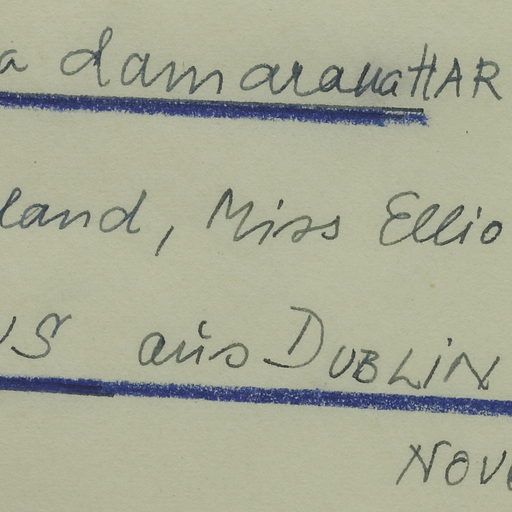 a damarana HAR
land, Miss Ellio
US aus DUBLIN
NOV